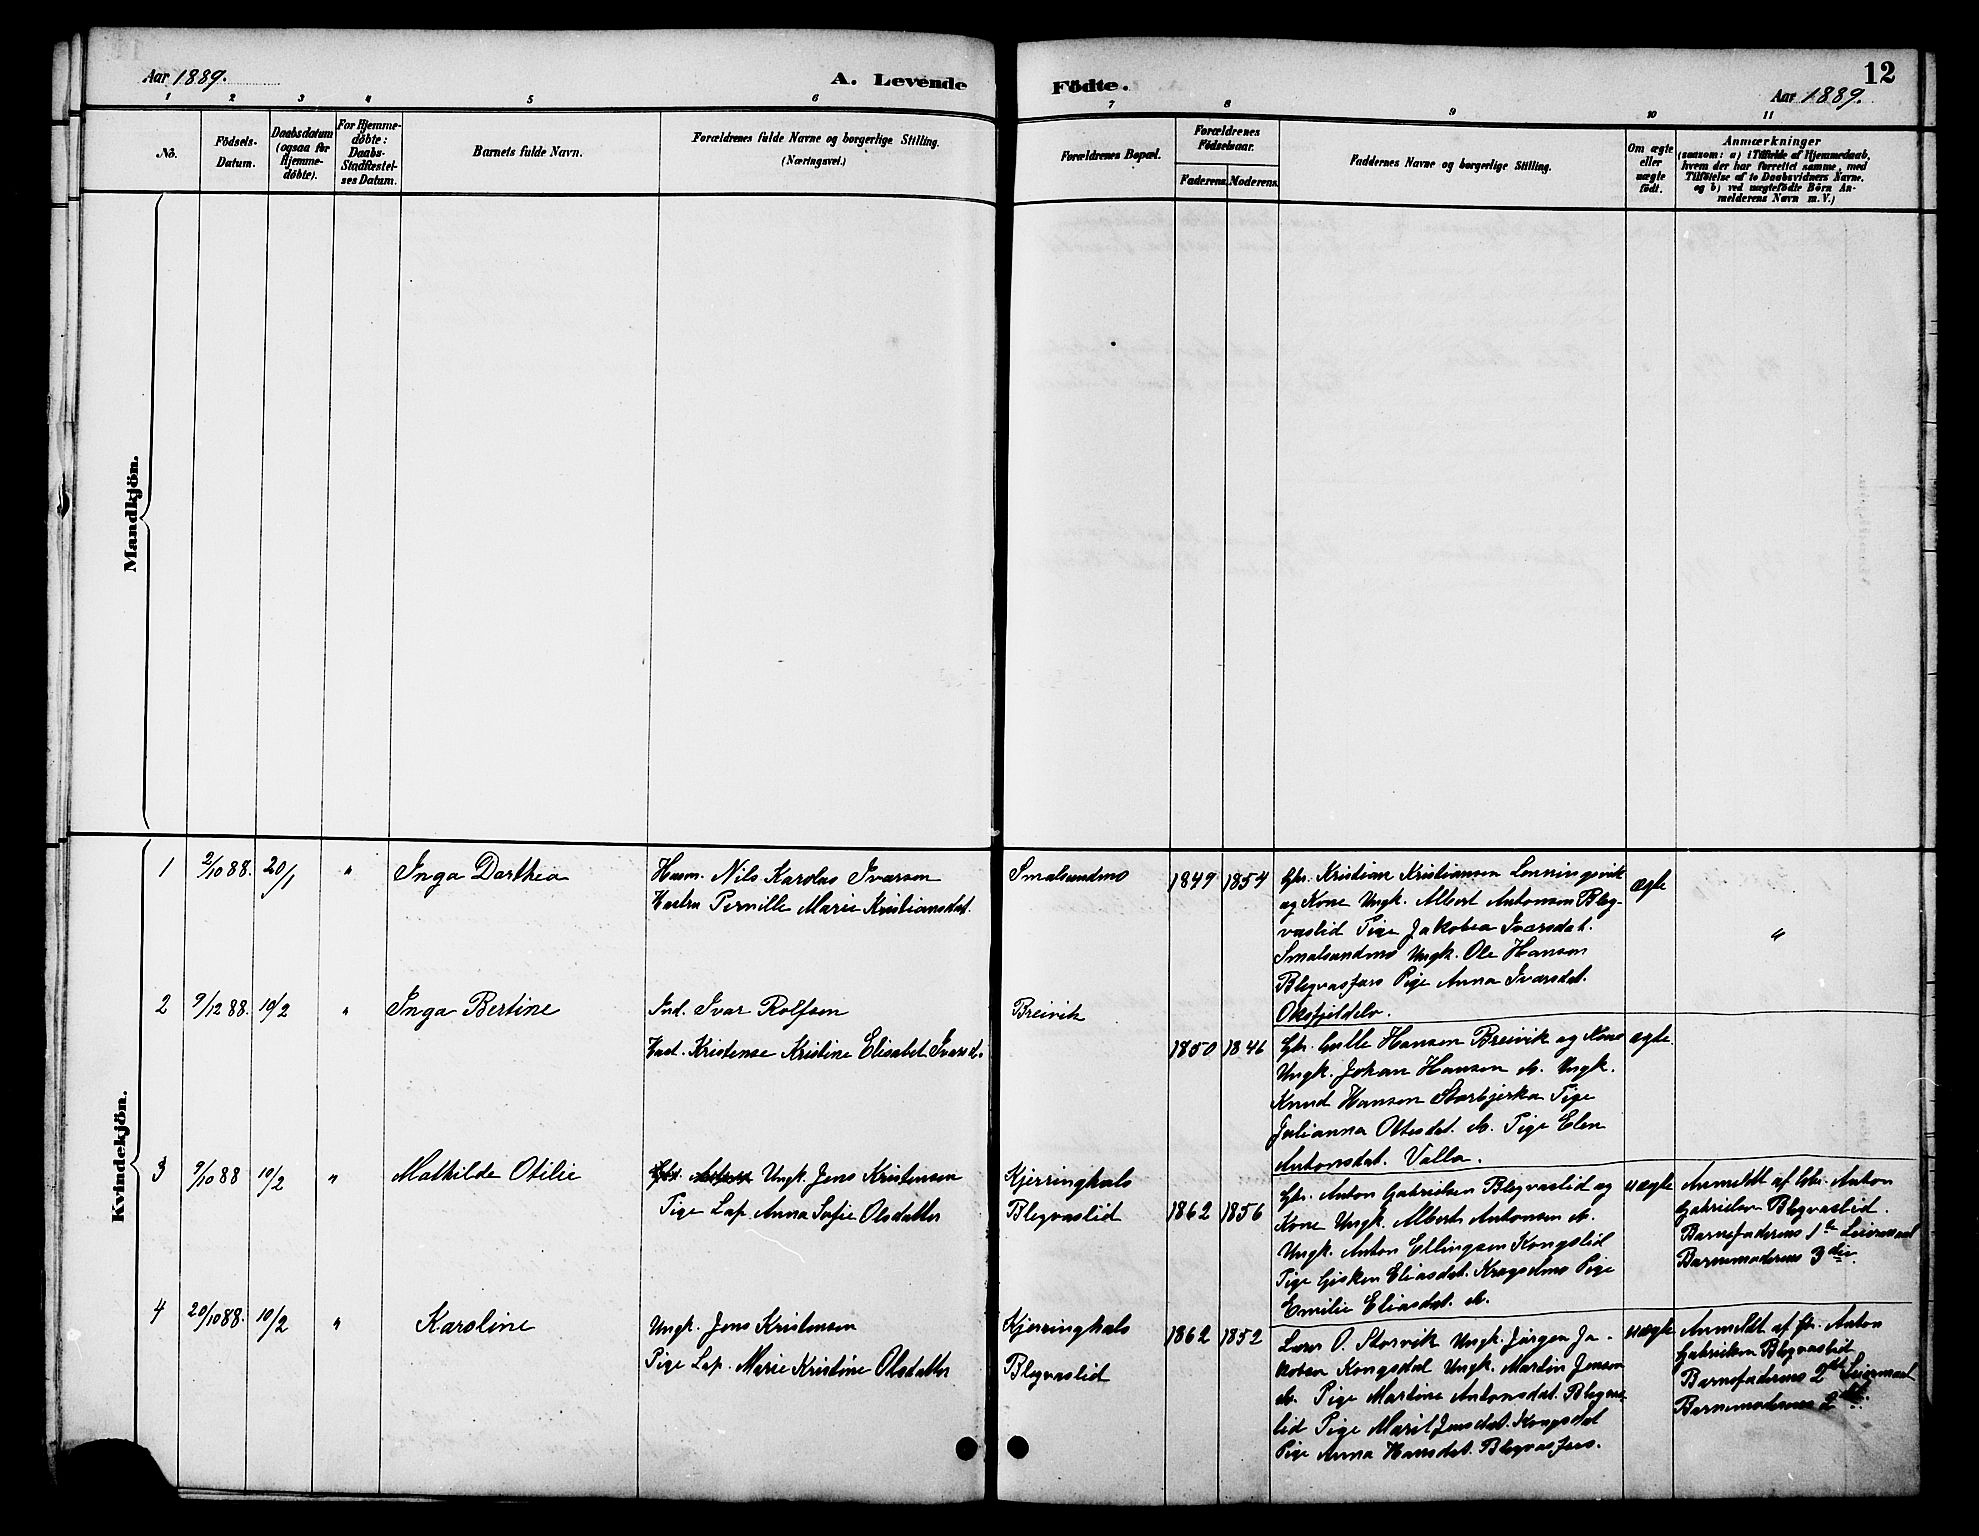 Aar 1889.
A. Levende
Födte.
12
Aar 1889.
1 2 3 4 5 6 7 8 9 10 11
No.
Födsels-
Datum.
Daabsdatum
(ogsaa for
Hjemme-
døbte).
For Hjemme-
døbte:
Daabs-
Stadfæstel-
ses Datum.
Barnets fulde Navn.
Forældrenes fulde Navne og borgerlige Stilling.
(Næringsvei.)
Forældrenes Bopæl.
Forældrenes
Födselsaar.
Faderens. Moderens.
Faddernes Navne og borgerlige Stilling.
Om ægte
eller
uægte
födt.
Anmærkninger
(saasom: a) i Tilfælde af Hjemmedaab,
hvem der har forrettet samme, med
Tilföielse af to Daabsvidners Navne.
og b) ved uægtefödte Börn An-
melderens Navn m. V.)
Mandkjön.
Kvindekjön.
1
2/10 88.
20/1
"
Inga Dorthea
Husm. Nils Karolus Ivarson
Hustru Pernille Marie Kristiansdat.
Smalsundmo
1849
1854
Gbr. Kristian Kristiansen Lonningsvik
og Kone Ungk. Albert Antonsen Bleg-
vaslid Pige Jakobea Ivarsdat.
Smalsundmo Ungk. Ole Hansen
Blegvasfors Pige Anna Ivarsdat.
Oksfjeldelv.
ægte
"
2
9/12 88.
10/2
"
Inga Bertine
Ind. Ivar Rolfsen
Hust. Kristense Kristine Elisabet Ivarsd.
Breivik
1850
1846
Gbr. Gulle Hansen Breivik og Kone
Ungk. Johan Hansen do. Ungk.
Knud Hansen Storbjerka Pige
Julianna Ottesdat. do. Pige Elen
Antonsdat. Valla.
ægte.
3
9/10 88
10/2
"
Mathilde Otilie
Ungk. Jens Kristensen
Pige Lap. Anna Sofie Olsdatter
Kjerringhals
Blegvaslid
1862
1856
Gbr. Anton Gabrielsen Blegvaslid og
Kone Ungk. Albert Antonsen do.
Ungk. Anton Ellingsen Kongslid
Pige Gisken Eliasdat. Kragsdmo Pige
Emilie Eliasdat. do.
uægte
Anmeldt af Gbr. Anton
Gabrielsen Blegvaslid.
Barnefaderens 1te Leiermaal
Barnemoderens 3die.
4
20/10 88.
10/2
"
Karoline
Ungk. Jens Kristensen
Pige Lap. Marie Kristine Olsdatter
Kjerringhals
Blegvaslid
1862
1852
Lars O. Storvik Ungk. Jörgen Ja-
kobsen Kongsdal Ungk. Martin Jensen
do. Pige Martine Antonsdat. Blegvas-
lid Pige Marit Jensdat. Kongsdal
Pige Anna Hansdat. Blegvasfors.
uægte
Anmeldt af Gbr. Anton
Gabrielsen Blegvaslid
Barnefaderens 2det Leiermaal
Barnemoderens 2det.